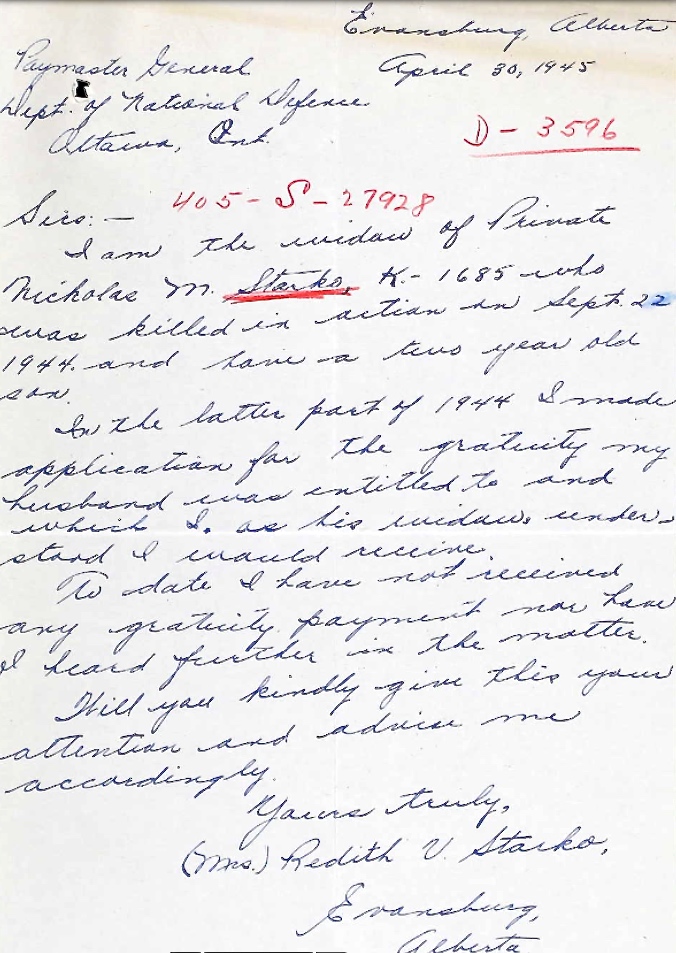 Evansburg, Alberta
April 30, 1945
Paymaster General
Dept. of National Defence
Ottawa, Ont.
D - 3596
405 - S - 27928
Sirs: -
I am the widow of Private
Nicholas M. Starko, K - 1685 who
was killed in action on Sept. 22
1944. and have a two year old
son.
In the latter part of 1944 I made
application for the gratuity my
husband was entitled to and
which I. as his widow. under-
stand I would receive.
To date I have not received
any gratuity payment nor have
I heard further in the matter.
Will you kindly give this your
attention and advise me
accordingly.
Yours truly,
(Mrs.) Redith V. Starko,
Evansburg,
Alberta